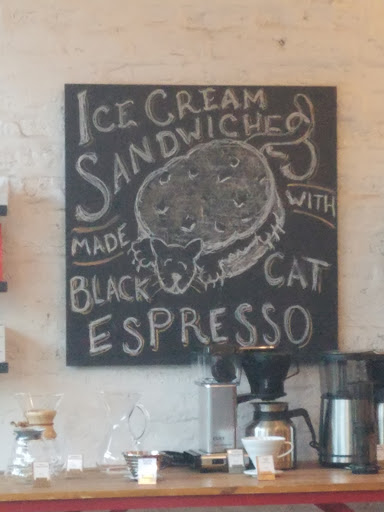 ICE CREAM
SANDWICHES
MADE WITH
BLACK CAT
ESPRESSO